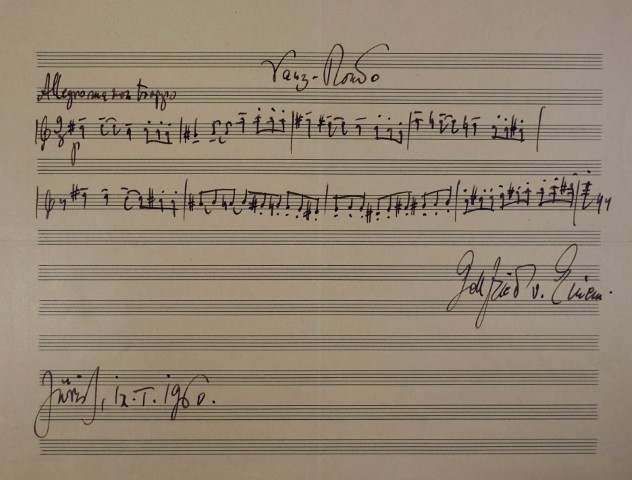 Tanz-Rondo
Allegro ma non troppo
p
Gottfried v. Einem.
Zürich, 12. I. 1960.